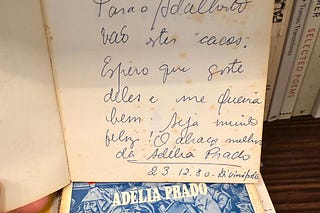 Para o Adalberto
vão estes cacos.
Espero que goste
deles e me queira
bem. Seja muito
feliz! O abraço melhor
da Adélia Prado
23.12.80. Divinópolis
ADÉLIA PRADO
SELECTED POEMS